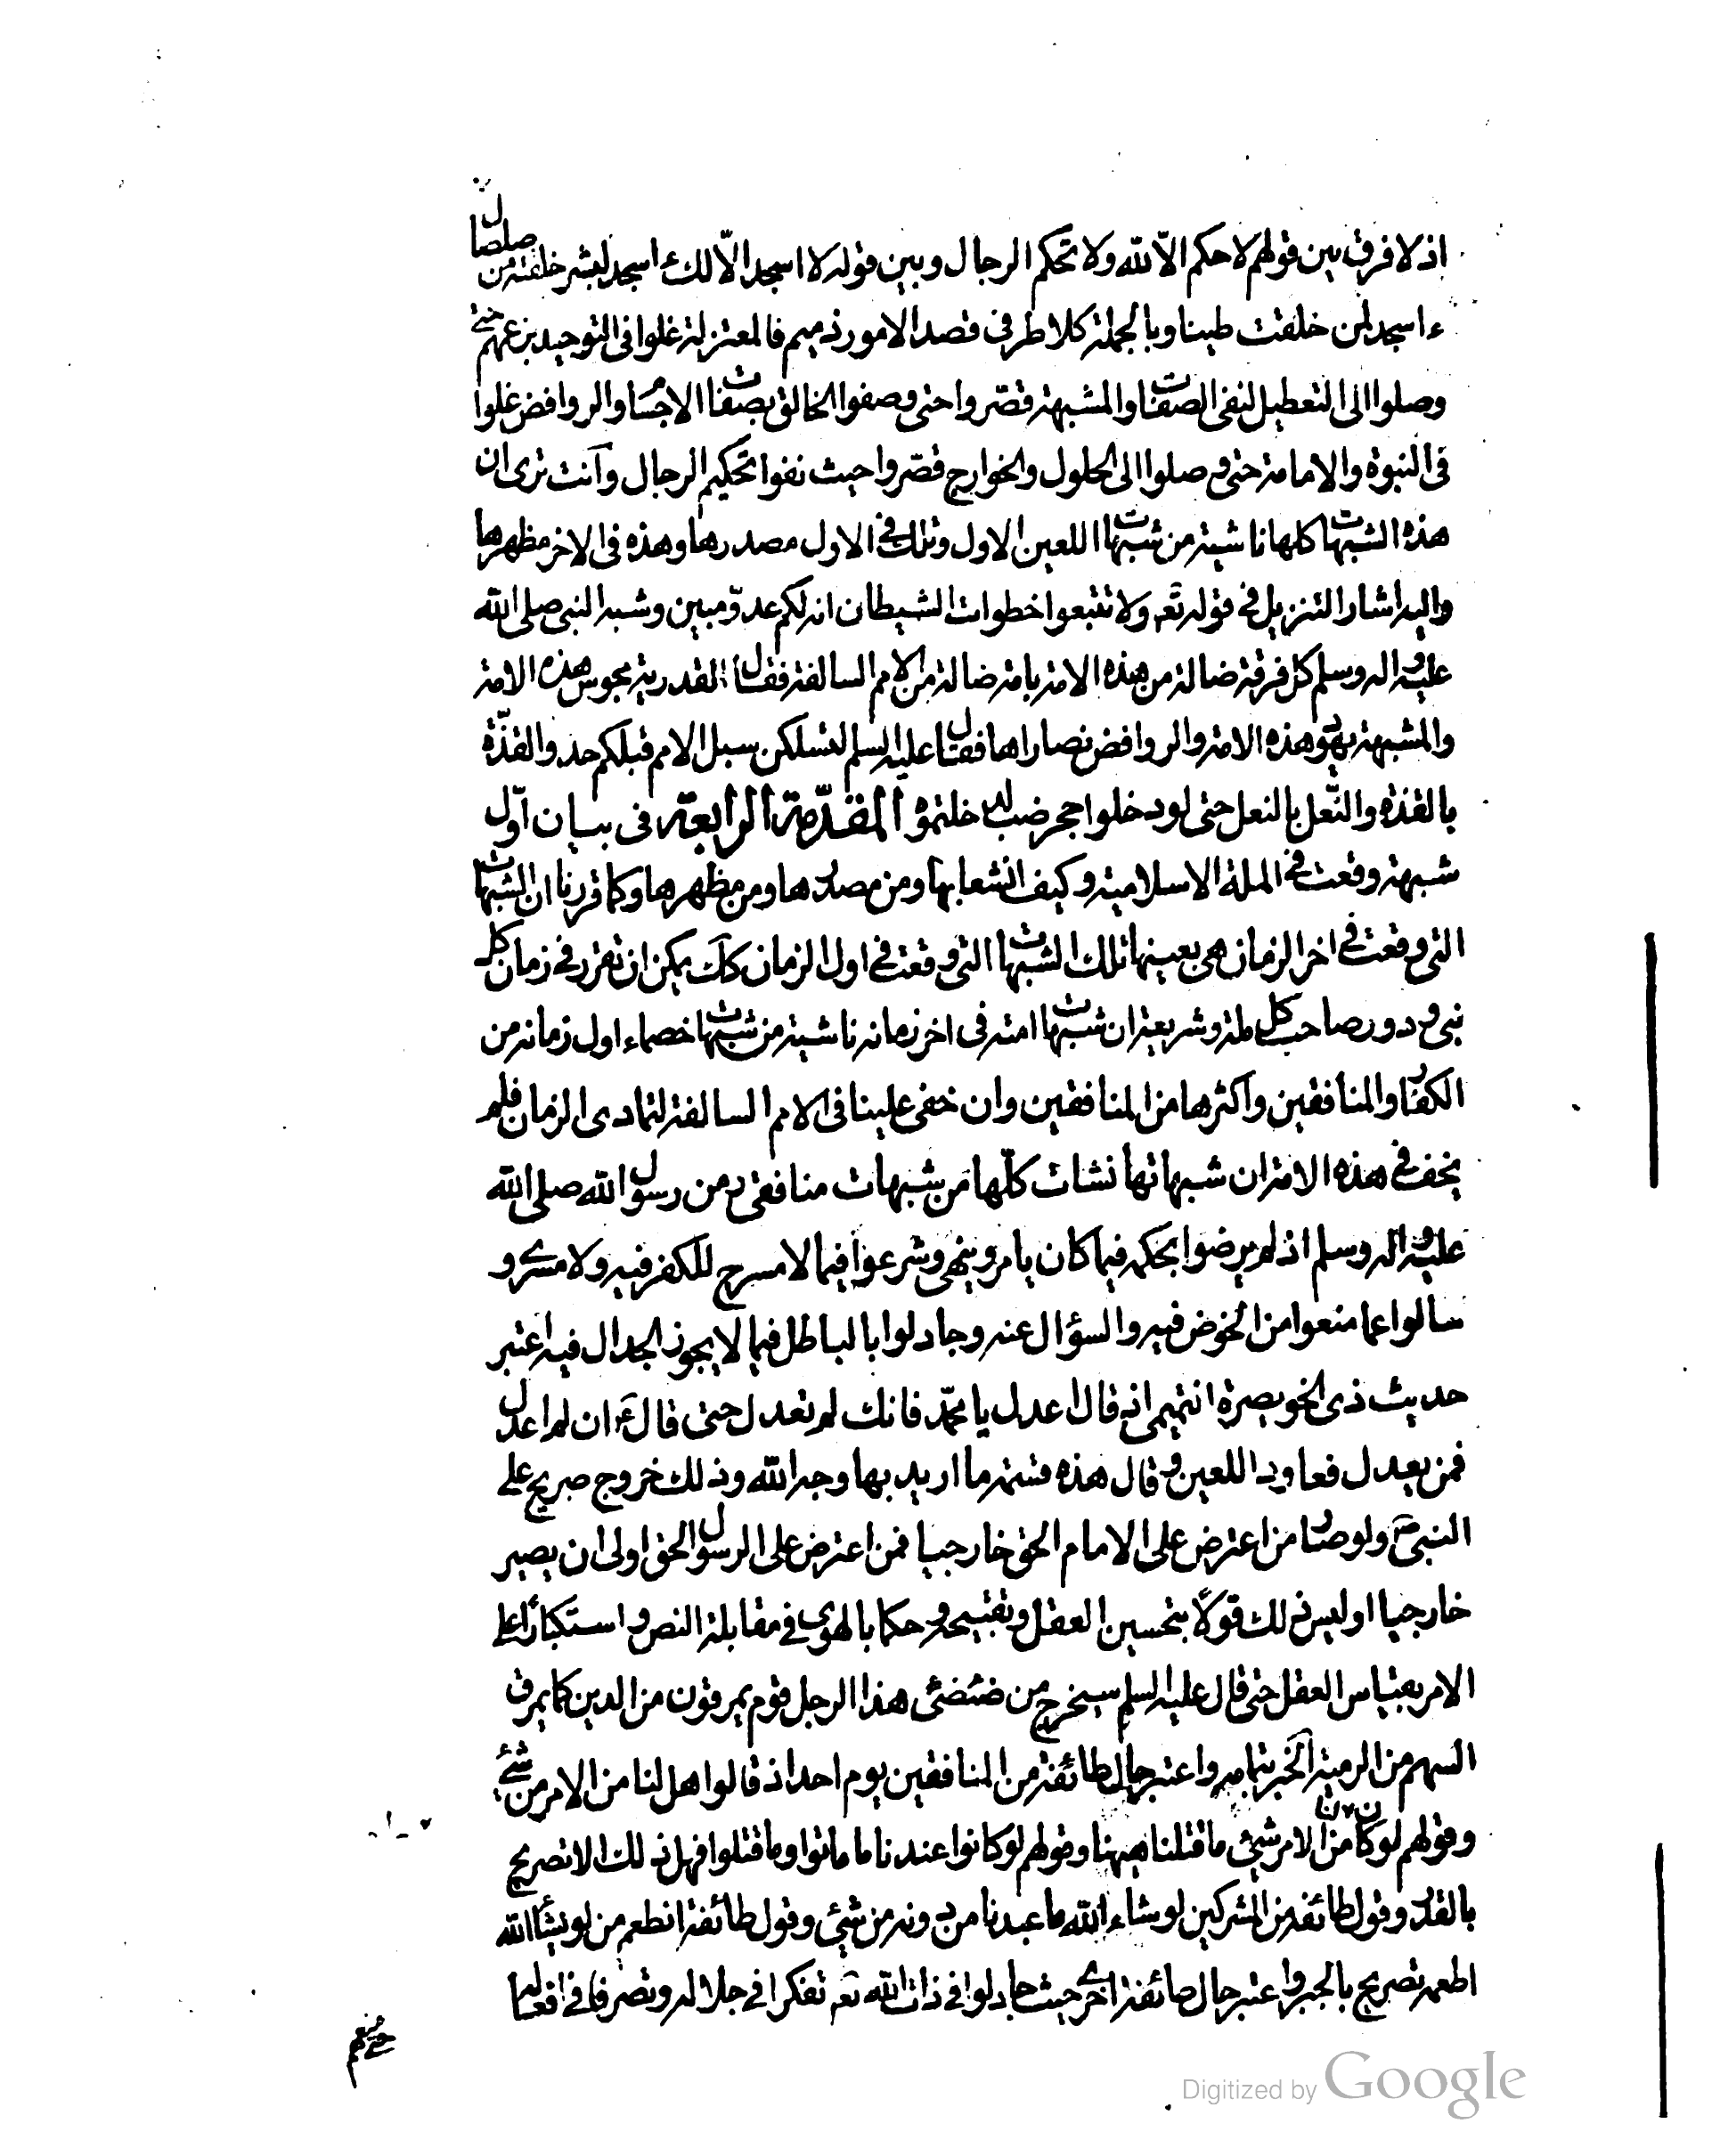 اذ لا فرق بين قولهم لا حكم الّا لله ولا تحكم الرجال وبين قوله لا اسجد الّا لك ءاسجد لبشر خلقته من صلصال
ءاسجد لمن خلقت طينا وبالجملة كلا طرفى قصد الامور ذميم فالمعتزلة غلوا فى التوحيد بزعمهم حتى
وصلوا الى التعطيل لنفى الصفات والمشبهة قصّروا حتى وصفوا الخالق بصفات الاجسام والروافض غلوا
فى النبوة والامامة حتى وصلوا الى الحلول والخوارج قصّروا حيث نفوا تحكيم الرجال وانت ترى ان
هذه الشبهات كلها ناشية من شبهات اللعين الاول وتلك فى الاول مصدرها وهذه فى الاخر مظهرها
واليه اشار التنزيل فى قوله تع ولا تتبعوا خطوات الشيطان انه لكم عدوّ مبين وشبه النبى صلى الله
عليه واله وسلم كل فرقة ضالة من هذه الامة بامة ضالة من الامم السالفة فقال القدرية مجوس هذه الامة
والمشبهة يهود هذه الامة والروافض نصاراها فقال عليه السلم لتسلكن سبل الامم قبلكم حذو القذّة
بالقذة والنّعل بالنعل حتى لو دخلوا جحر ضب لدخلتموه المقدّمة الرابعة فى بيان اوّل
شبهة وقعت فى الملة الاسلامية وكيف انشعابها ومن مصدرها ومن مظهرها وكما قررنا ان الشبهات
التى وقعت فى اخر الزمان هى بعينها تلك الشبهات التى وقعت فى اول الزمان كك يمكن ان تقرر فى زمان كل
نبى ودور صاحب كل ملة وشريعة ان شبهات امته فى اخر زمانه ناشية من شبهات خصماء اول زمانه من
الكفار والمنافقين واكثرها من المنافقين وان خفى علينا فى الامم السالفة لتمادى الزمان فلم
يخف فى هذه الامة ان شبهاتها نشات كلّها من شبهات منافقى زمن رسول الله صلى الله
عليه واله وسلم اذ لم يرضوا بحكمه فيما كان يامر وينهى وشرعوا فيما لا مسرح للكفر فيه ولا مسرى و
سالوا عما منعوا من الخوض فيه والسؤال عنه وجادلوا بالباطل فيما لا يجوز الجدال فيه اعتبر
حديث ذى الخويصرة التميمى اذ قال اعدل يا محمّد فانك لم تعدل حتى قال ع ان لم اعدل
فمن يعدل فعاود اللعين وقال هذه قسمة ما اريد بها وجه الله وذلك خروج صريح على
النبى ص ولو صار من اعترض على الامام الحق خارجيا فمن اعترض على الرسول الحق اولى ان يصير
خارجيا اوليس ذلك قولا بتحسين العقل وتقبيحه وحكما بالهوى فى مقابلة النص واستكبارا على
الامر بقياس العقل حتى قال عليه السلم سيخرج من ضئضئى هذا الرجل قوم يمرقون من الدين كما يمرق
السهم من الرمية الخبر بتمامه واعتبر حال طائفة من المنافقين يوم احد اذ قالوا هل لنا من الامر من شئ
وقولهم لو كان لنا من الامر شئ ما قتلنا ههنا وقولهم لو كانوا عندنا ما ماتوا وما قتلوا فهل ذلك الا تصريح
بالقدر وقول طائفة من المشركين لو شاء الله ما عبدنا من دونه من شئ وقول طائفة انطعم من لو يشاء الله
اطعمه تصريح بالجبر واعتبر حال طائفة اخرى حيث جادلوا فى ذات الله تع تفكرا فى جلاله وتصرفا فى افعاله
Digitized by Google